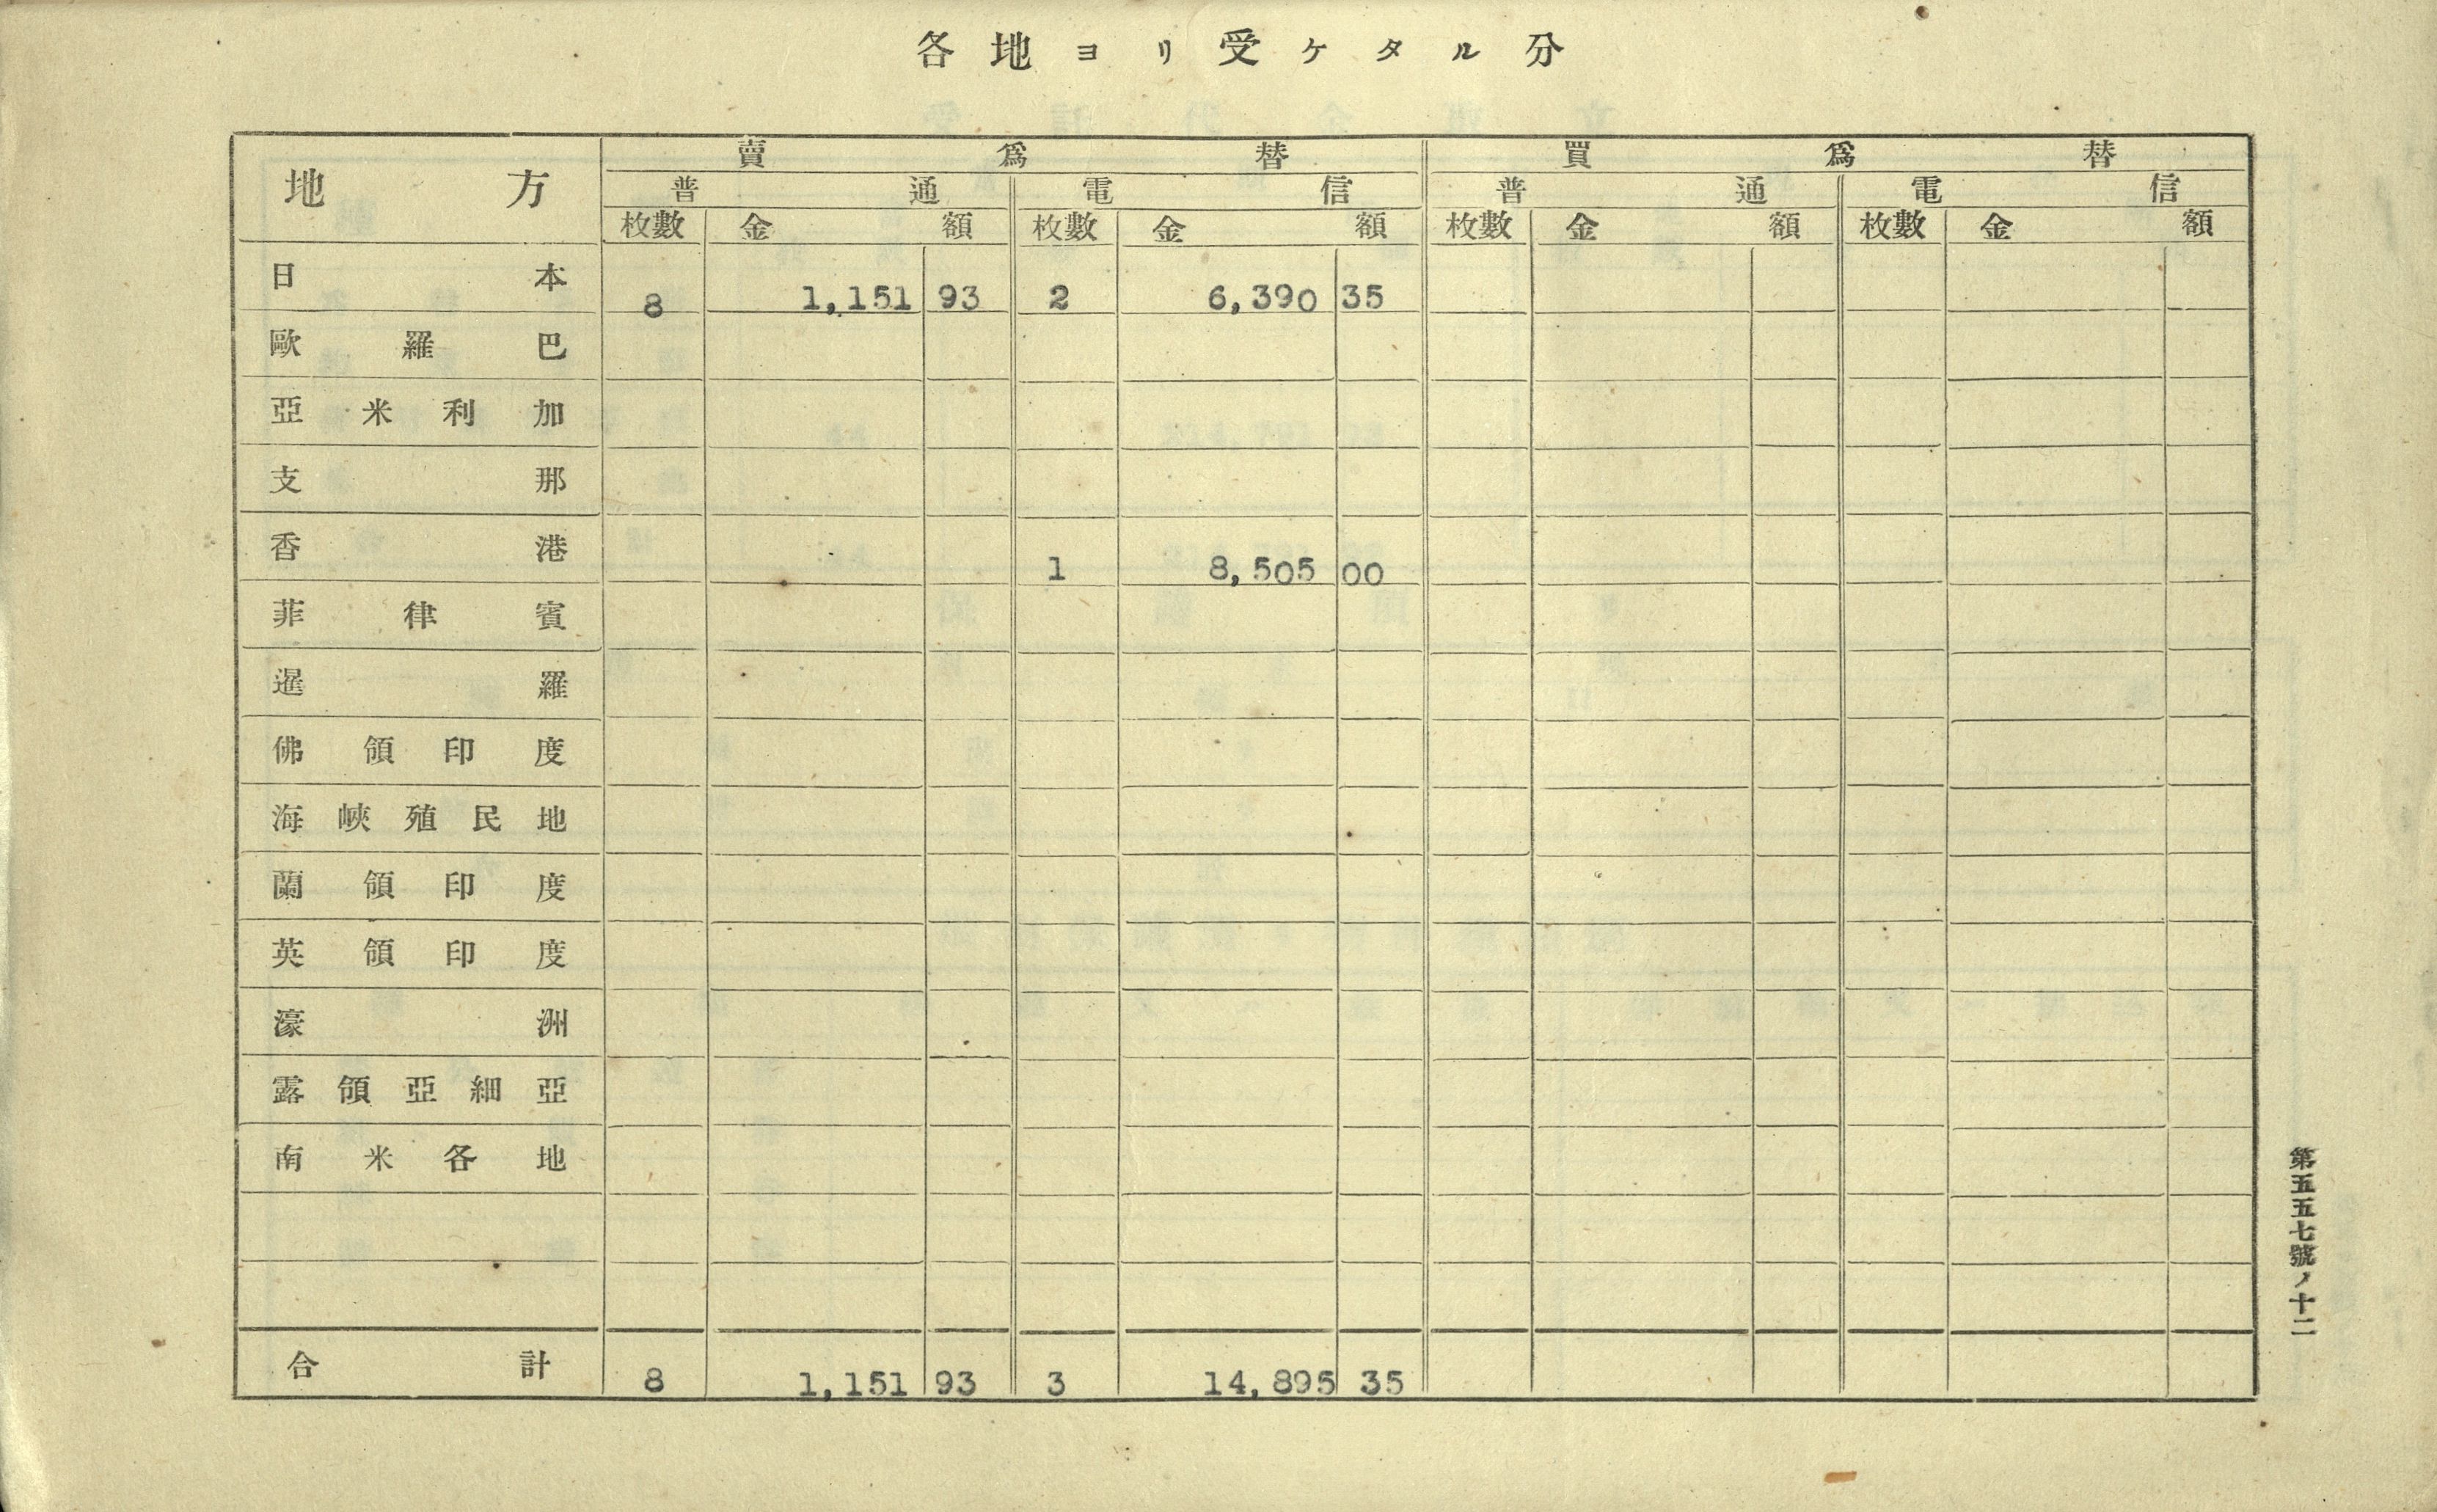 各地ヨリ受ケタル分
地方 賣爲替 買爲替
普通 電信 普通 電信
枚數 金額 枚數 金額 枚數 金額 枚數 金額
日本 8 1,151 93 2 6,390 35
歐羅巴
亞米利加
支那
香港 1 8,505 00
菲律賓
暹羅
佛領印度
海峽殖民地
蘭領印度
英領印度
濠洲
露領亞細亞
南米各地
合計 8 1,151 93 3 14,895 35
第五五七號ノ十二